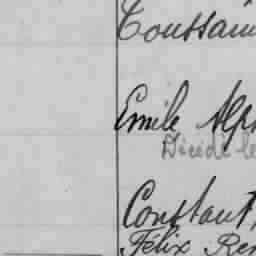 Toussain
Emile Alph
Décédé le
Constant,
Félix Ren